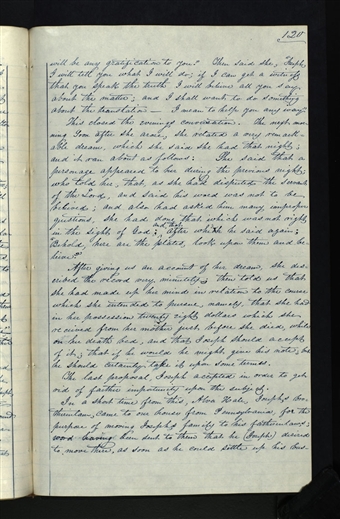 120
will be any gratification to you? Then said she, Joseph,
I will tell you what I will do; if I can get a witness
that you speak the truth I will believe all you say,
about the matter; and I shall want to do something
about the translation — I mean to help you any way.
This closed the evenings conversation. The next mor-
ning soon after she arose, she related a very remark-
able dream, which she said she had that night;
and it ran about as follows: She said that a
personage appeared to her during the previous night,
who told her, that, as she had disputed the servant
of the Lord, and said his word was not to be
believed; and also had asked him many improper
questions, she had done that which was not right
in the sight of God; after which he said again;
Behold, here are the plates, look upon them and be-
lieve."
After giving us an account of her dream, she des-
cribed the record very minutely; then told us that
she had made up her mind in relation to the course
which she intended to pursue, namely, that she had
in her possession twenty eight dollars which she
received from her mother just before she died, while
on her death bed, and that Joseph should accept
of it; that if he would he might give his note, but
he should certainly take it upon some terms.
The last proposal, Joseph accepted in order to get
rid of farther importunity upon the subject.
In a short time from this, Alva Hale, Joseph's bro-
therinlaw, came to our house from Pennsylvania, for the
purpose of moving Joseph's family to his fatherinlaws;
word having been sent to them that he (Joseph) desired
to move there, as soon as he could settle up his bus-